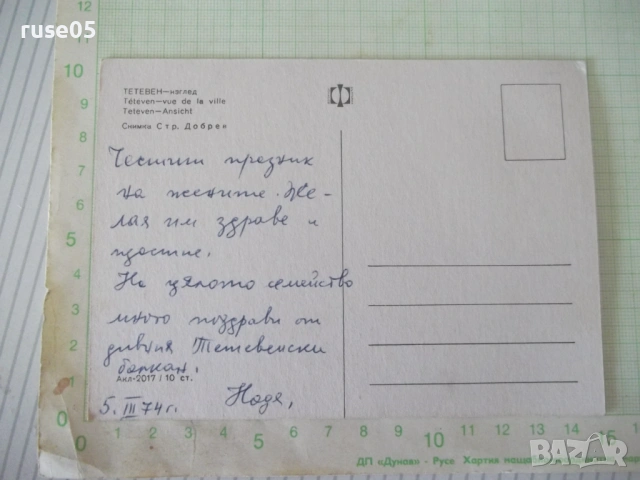 ruse05
ТЕТЕВЕН—изглед
Téteven—vue de la ville
Teteven—Ansicht
Снимка Стр. Добрев
Честит празник
на жените. Же-
лая им здраве и
щастие.
На цялото семейство
много поздрави от
дивния Тетевенски
балкан.
Акл-2017 / 10 ст.
5. III 74 г. Надя,
10
9
8
7
6
5
4
3
2
1
0
0 1 2 3 4 5 6 7 8 9 10 11 12 13 14 15 16
ДП «Дунав» - Русе. Хартия
BAZAR